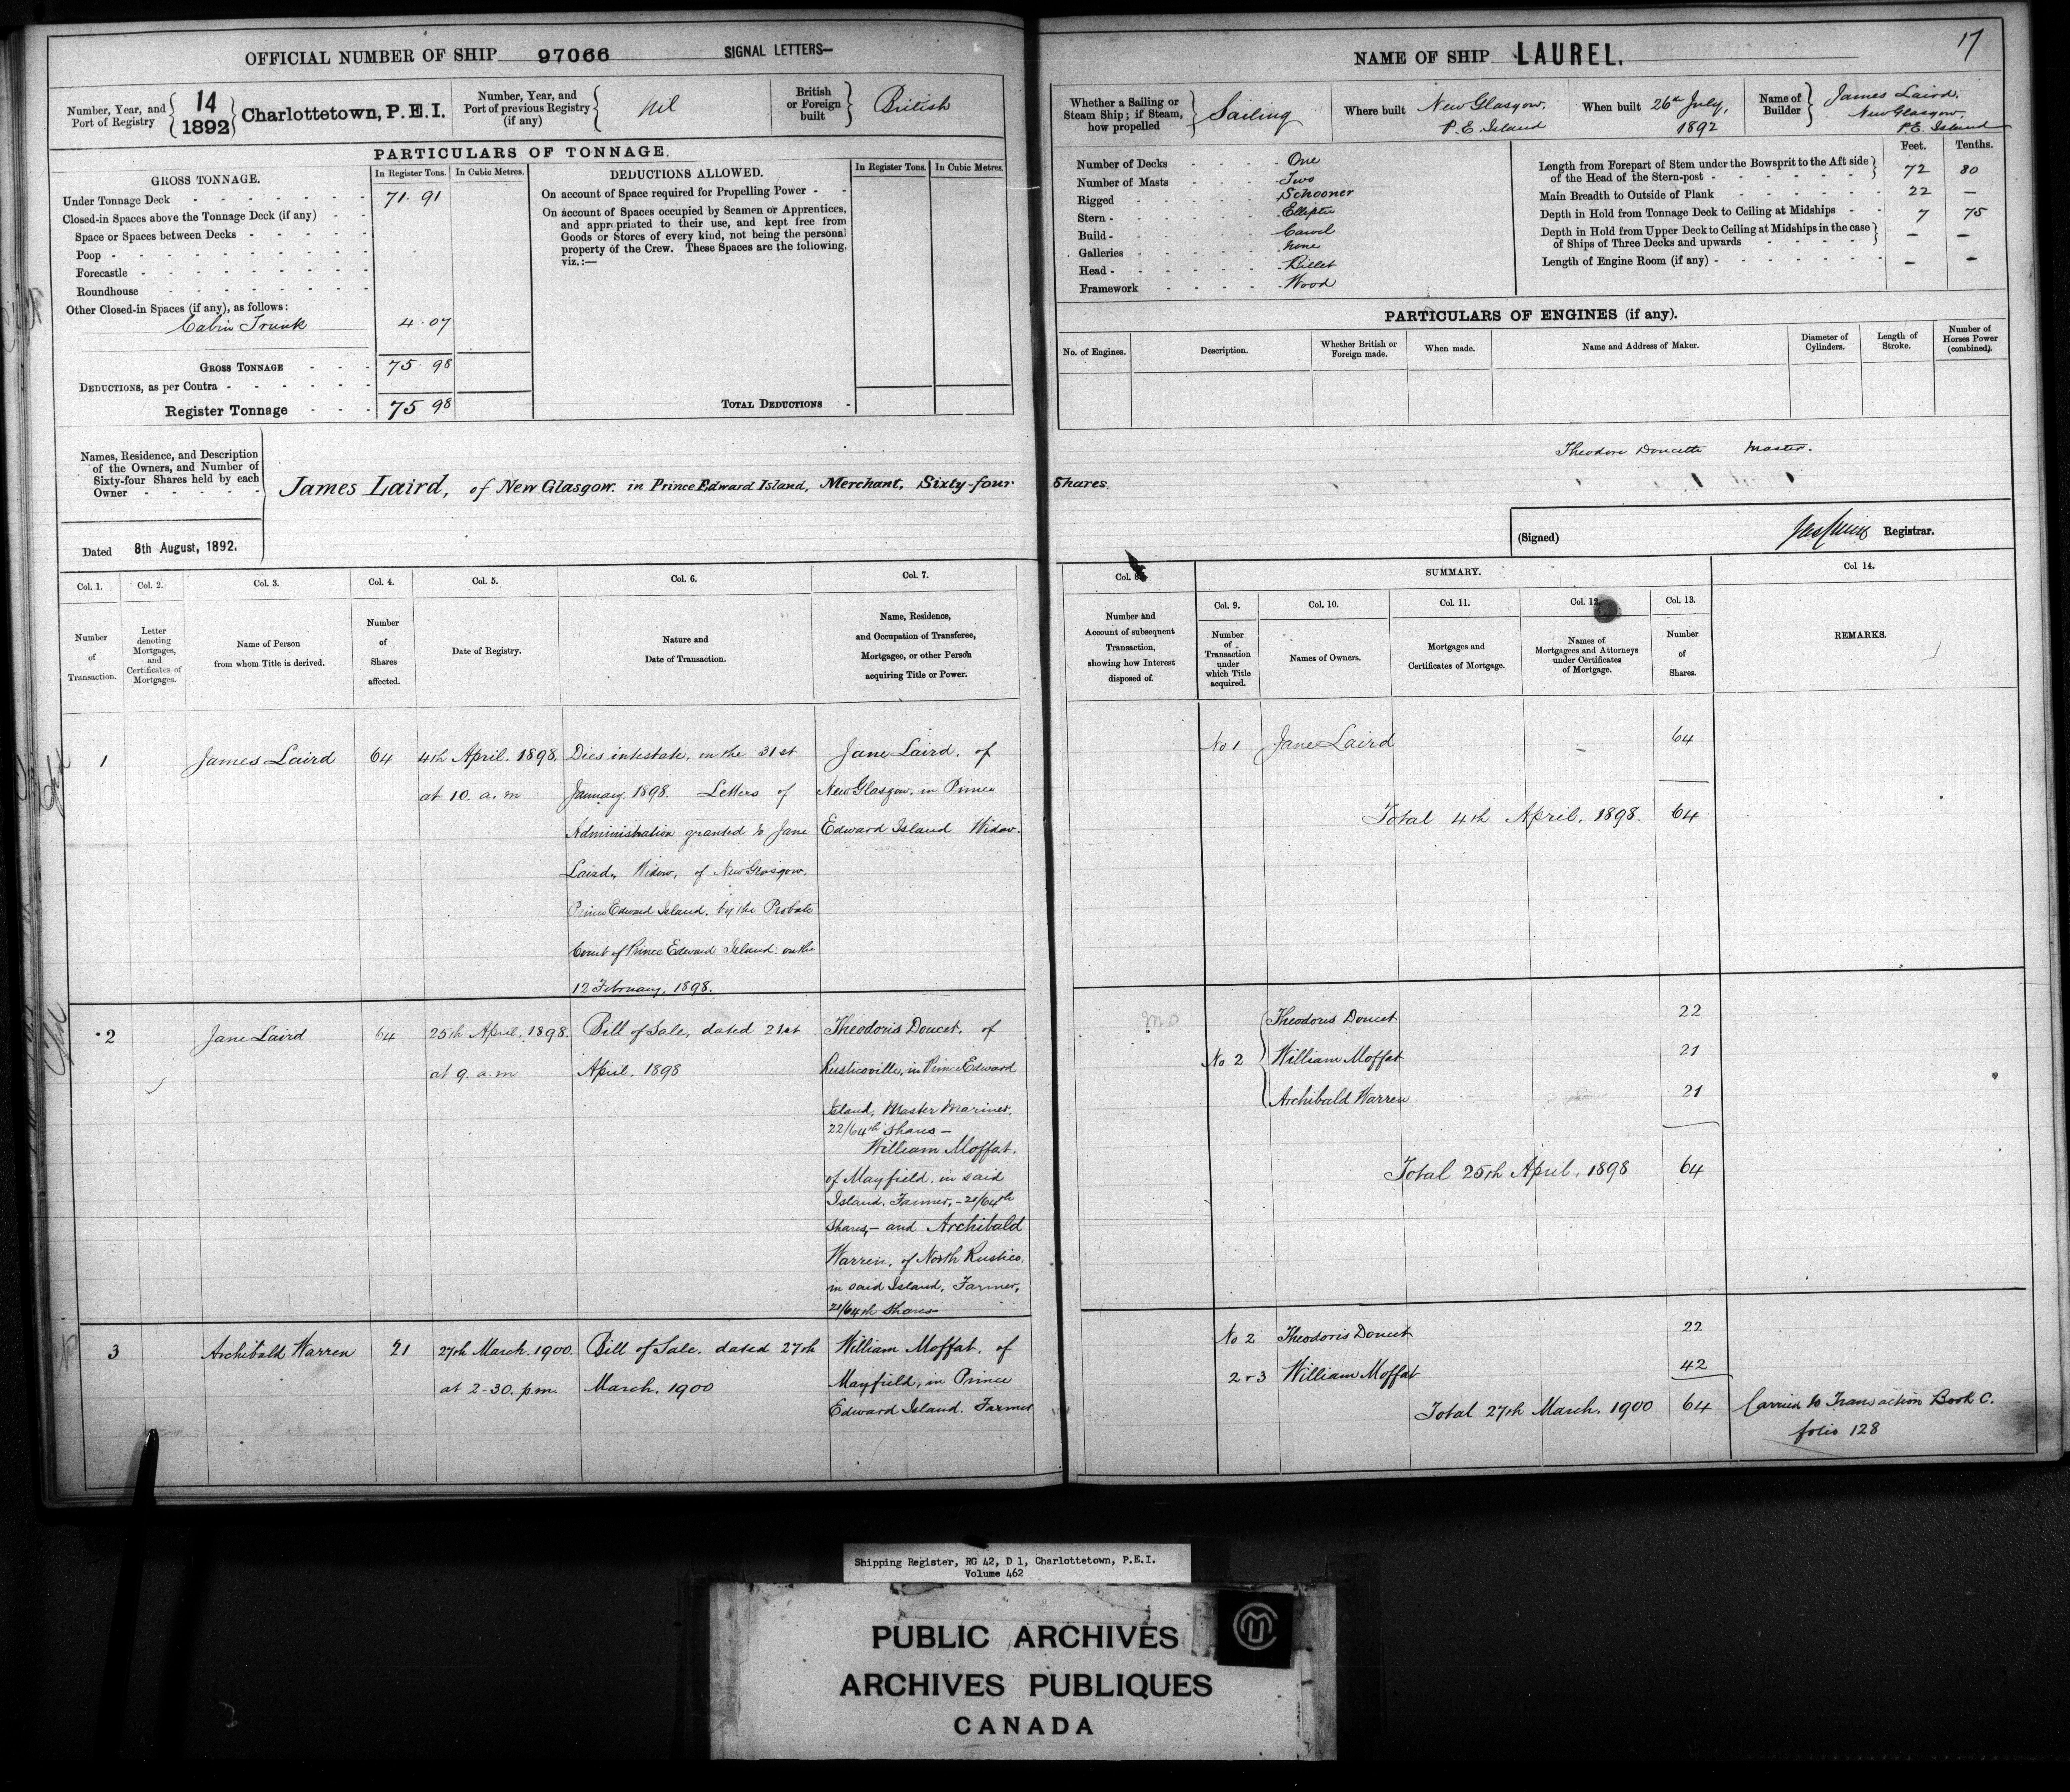 OFFICIAL NUMBER OF SHIP 97066 SIGNAL LETTERS—
Number, Year, and Port of Registry 14 1892 Charlottetown, P.E.I. Number, Year, and Port of previous Registry (if any) Nil British or Foreign built British
PARTICULARS OF TONNAGE.
GROSS TONNAGE. In Register Tons. In Cubic Metres. DEDUCTIONS ALLOWED. In Register Tons. In Cubic Metres.
Under Tonnage Deck 71. 91
Closed-in Spaces above the Tonnage Deck (if any)
Space or Spaces between Decks
Poop
Forecastle
Roundhouse
Other Closed-in Spaces (if any), as follows:
Cabin Trunk 4. 07
GROSS TONNAGE 75. 98
DEDUCTIONS, as per Contra
Register Tonnage 75 98
On account of Space required for Propelling Power
On account of Spaces occupied by Seamen or Apprentices,
and appropriated to their use, and kept free from
Goods or Stores of every kind, not being the personal
property of the Crew. These Spaces are the following,
viz.:—
TOTAL DEDUCTIONS
Names, Residence, and Description
of the Owners, and Number of
Sixty-four Shares held by each
Owner
James Laird, of New Glasgow in Prince Edward Island, Merchant, Sixty-four Shares
Dated 8th August, 1892.
NAME OF SHIP LAUREL.
17
Whether a Sailing or Steam Ship; if Steam, how propelled Sailing
Where built New Glasgow, P. E. Island
When built 26th July, 1892
Name of Builder James Laird, New Glasgow, P.E. Island
Number of Decks One
Number of Masts Two
Rigged Schooner
Stern Elliptic
Build Carvel
Galleries None
Head Billet
Framework Wood
Feet. Tenths.
Length from Forepart of Stem under the Bowsprit to the Aft side
of the Head of the Stern-post 72 80
Main Breadth to Outside of Plank 22 —
Depth in Hold from Tonnage Deck to Ceiling at Midships 7 75
Depth in Hold from Upper Deck to Ceiling at Midships in the case
of Ships of Three Decks and upwards — —
Length of Engine Room (if any) — —
PARTICULARS OF ENGINES (if any).
No. of Engines. Description. Whether British or Foreign made. When made. Name and Address of Maker. Diameter of Cylinders. Length of Stroke. Number of Horses Power (combined).
Theodore Doucette Master.
(Signed) Registrar.
Col. 1. Col. 2. Col. 3. Col. 4. Col. 5. Col. 6. Col. 7.
Number of Transaction.
Letter denoting Mortgages, and Certificates of Mortgages.
Name of Person from whom Title is derived.
Number of Shares affected.
Date of Registry.
Nature and Date of Transaction.
Name, Residence, and Occupation of Transferee, Mortgagee, or other Person acquiring Title or Power.
Col. 8. SUMMARY. Col 14.
Col. 9. Col. 10. Col. 11. Col. 12. Col. 13.
Number and Account of subsequent Transaction, showing how Interest disposed of.
Number of Transaction under which Title acquired.
Names of Owners.
Mortgages and Certificates of Mortgage.
Names of Mortgagees and Attorneys under Certificates of Mortgage.
Number of Shares.
REMARKS.
1 James Laird 64 4th April. 1898, at 10. a.m
Dies intestate, on the 31st
January 1898. Letters of
Administration granted to Jane
Laird, Widow, of New Glasgow.
Prince Edward Island, by the Probate
Court of Prince Edward Island on the
12 February, 1898.
Jane Laird, of
New Glasgow, in Prince
Edward Island Widow.
No 1 Jane Laird 64
Total 4th April, 1898. 64
2 Jane Laird 64 25th April. 1898. at 9. a.m
Bill of Sale, dated 21st
April, 1898
Theodoris Doucet, of
Rusticoville, in Prince Edward
Island, Master Mariner,
22/64th Shares—
William Moffat,
of Mayfield, in said
Island, Farmer,—21/64th
Shares,—and Archibald
Warren, of North Rustico,
in said Island, Farmer,
21/64th Shares
No 2 Theodoris Doucet 22
William Moffat 21
Archibald Warren 21
Total 25th April, 1898 64
3 Archibald Warren 21 27th March. 1900. at 2-30. p.m.
Bill of Sale, dated 27th
March, 1900
William Moffat, of
Mayfield, in Prince
Edward Island. Farmer
No 2 Theodoris Doucet 22
2 & 3 William Moffat 42
Total 27th March, 1900 64 Carried to Transaction Book C.
folio 128
Shipping Register, RG 42, D 1, Charlottetown, P.E.I.
Volume 462
PUBLIC ARCHIVES
ARCHIVES PUBLIQUES
CANADA